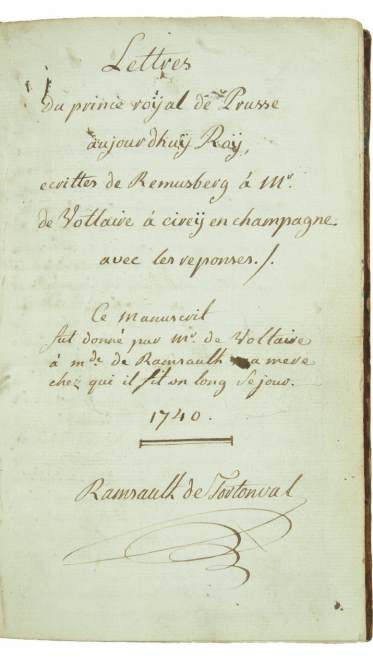 Lettres
Du prince roÿal de Prusse
aujourdhuÿ Roÿ,
ecrittes de Remusberg à Mr.
de Voltaire à cireÿ en champagne
avec les reponses./.
Ce manuscrit
fut donné par mr. de Voltaire
à mde. de Ramsault ma mere
chez qui il fit un long sejour.
1740.
Ramsault de Tortonval